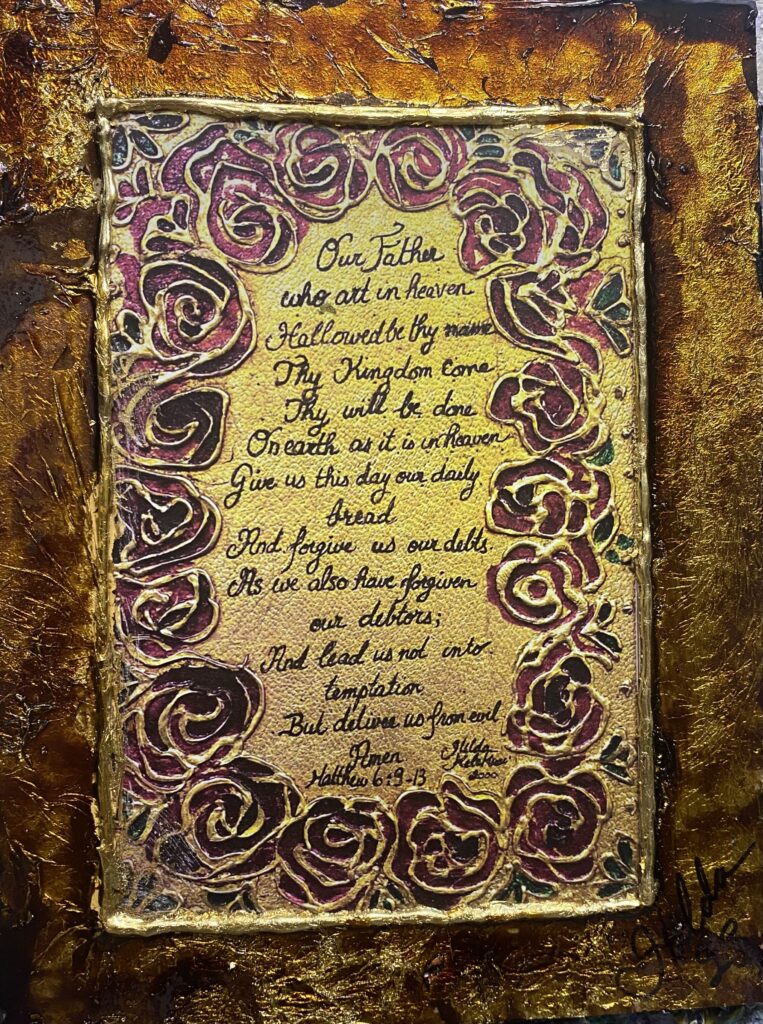 Our Father
who art in heaven
Hallowed be thy name
Thy Kingdom Come
Thy will be done
On earth as it is in heaven
Give us this day our daily
bread
And forgive us our debts.
As we also have forgiven
our debtors;
And lead us not into
temptation
But deliver us from evil
Amen
Matthew 6:9-13
Hilda
2000
Hilda